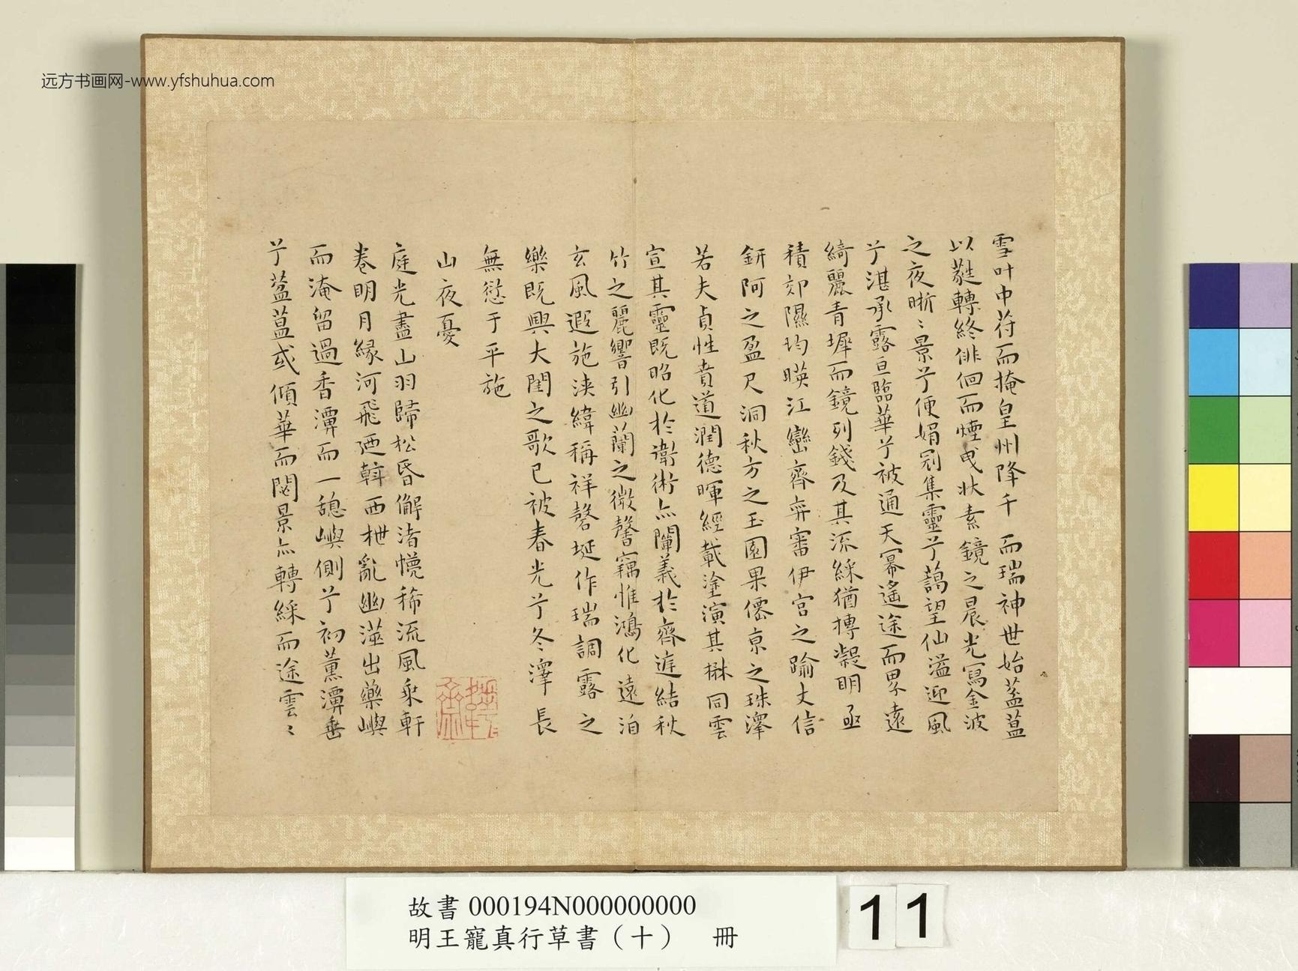 远方书画网-www.yfshuhua.com
雪叶中符而掩皇州降千 而瑞神世始葢蒀
以蕤轉終俳佪而煙曵狀素鏡之晨光寫金波
之夜晣〻景兮便娟冠集靈兮藹望仙溢迎風
兮湛承露亘臨華兮被通天冪遙途而界遠
綺麗青墀而鏡列錢及其流綵猶摶凝明亟
積郊隰均暎江巒齊弅審伊宮之踰丈信
鈃阿之盈尺洞秋方之玉園果僊京之珠澤
若夫貞性賁道潤德暉經載塗演其楙同雲
宣其靈既昭化於衛術亦闡義於齊遊結秋
竹之麗響引幽蘭之微馨竊惟鴻化遠洎
玄風遐施浹緯稱祥罄埏作瑞調露之
樂既興大閏之歌已被春光兮冬澤長
無愆于平施
山夜憂
庭光盡山羽歸松昏解渚懭稀流風乘軒
卷明月緣河飛迺斡西枻亂幽澨出樂嶼
而淹留過香潭而一憩嶼側兮初薰潭垂
兮葢蒀或傾華而閱景亦轉綵而途雲〻
故書 000194N000000000
明王寵真行草書（十） 冊
11